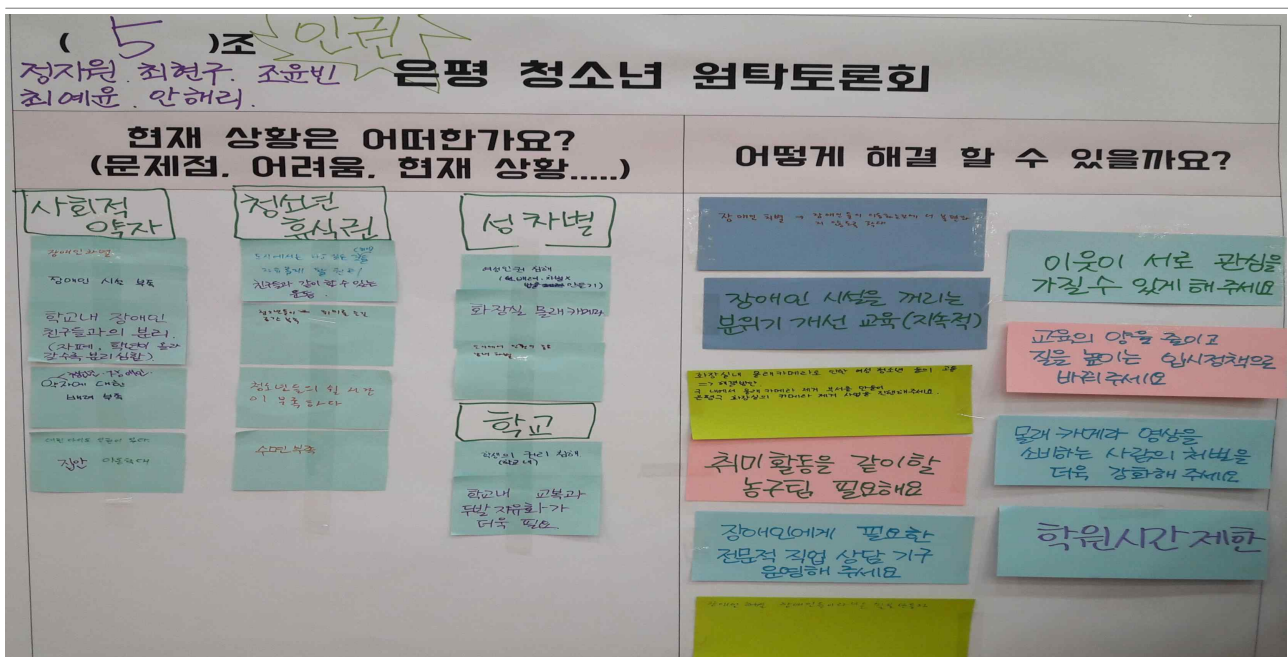 ( 5 )조 인권
정지원. 최현구. 조윤빈
최예윤. 안해리.
은평 청소년 원탁토론회
현재 상황은 어떠한가요?
(문제점, 어려움, 현재 상황.....)
사회적
약자
장애인차별
장애인 시설 부족
학교내 장애인
친구들과의 분리.
(자폐, 학년이 올라
갈수록 분리 심함)
약자에 대한
배려 부족
집안
청소년
휴식권
친구들과 같이 할 수 있는
운동.
공간 부족
청소년들의 쉴 시간
이 부족하다
수면 부족
성차별
여성인권 침해
화장실 몰래카메라
학교
학생의 권리 침해
(학교 내)
학교내 교복과
두발 자유화가
더욱 필요
어떻게 해결 할 수 있을까요?
장애인 차별 →
장애인 시설을 꺼리는
분위기 개선 교육(지속적)
화장실내 몰래카메라로 인한 여성 청소년
=> 해결방안
구 내에서 몰래카메라 제거 부서를 만들어
은평구 화장실의 카메라 제거 사업을 진행해주세요.
취미활동을 같이할
농구팀 필요해요
장애인에게 필요한
전문적 직업 상담 기구
운영해 주세요
이웃이 서로 관심을
가질수 있게 해 주세요
교육의 양을 줄이고
질을 높이는 입시정책으로
바꿔주세요
몰래 카메라 영상을
소비하는 사람의 처벌을
더욱 강화해 주세요
학원시간 제한